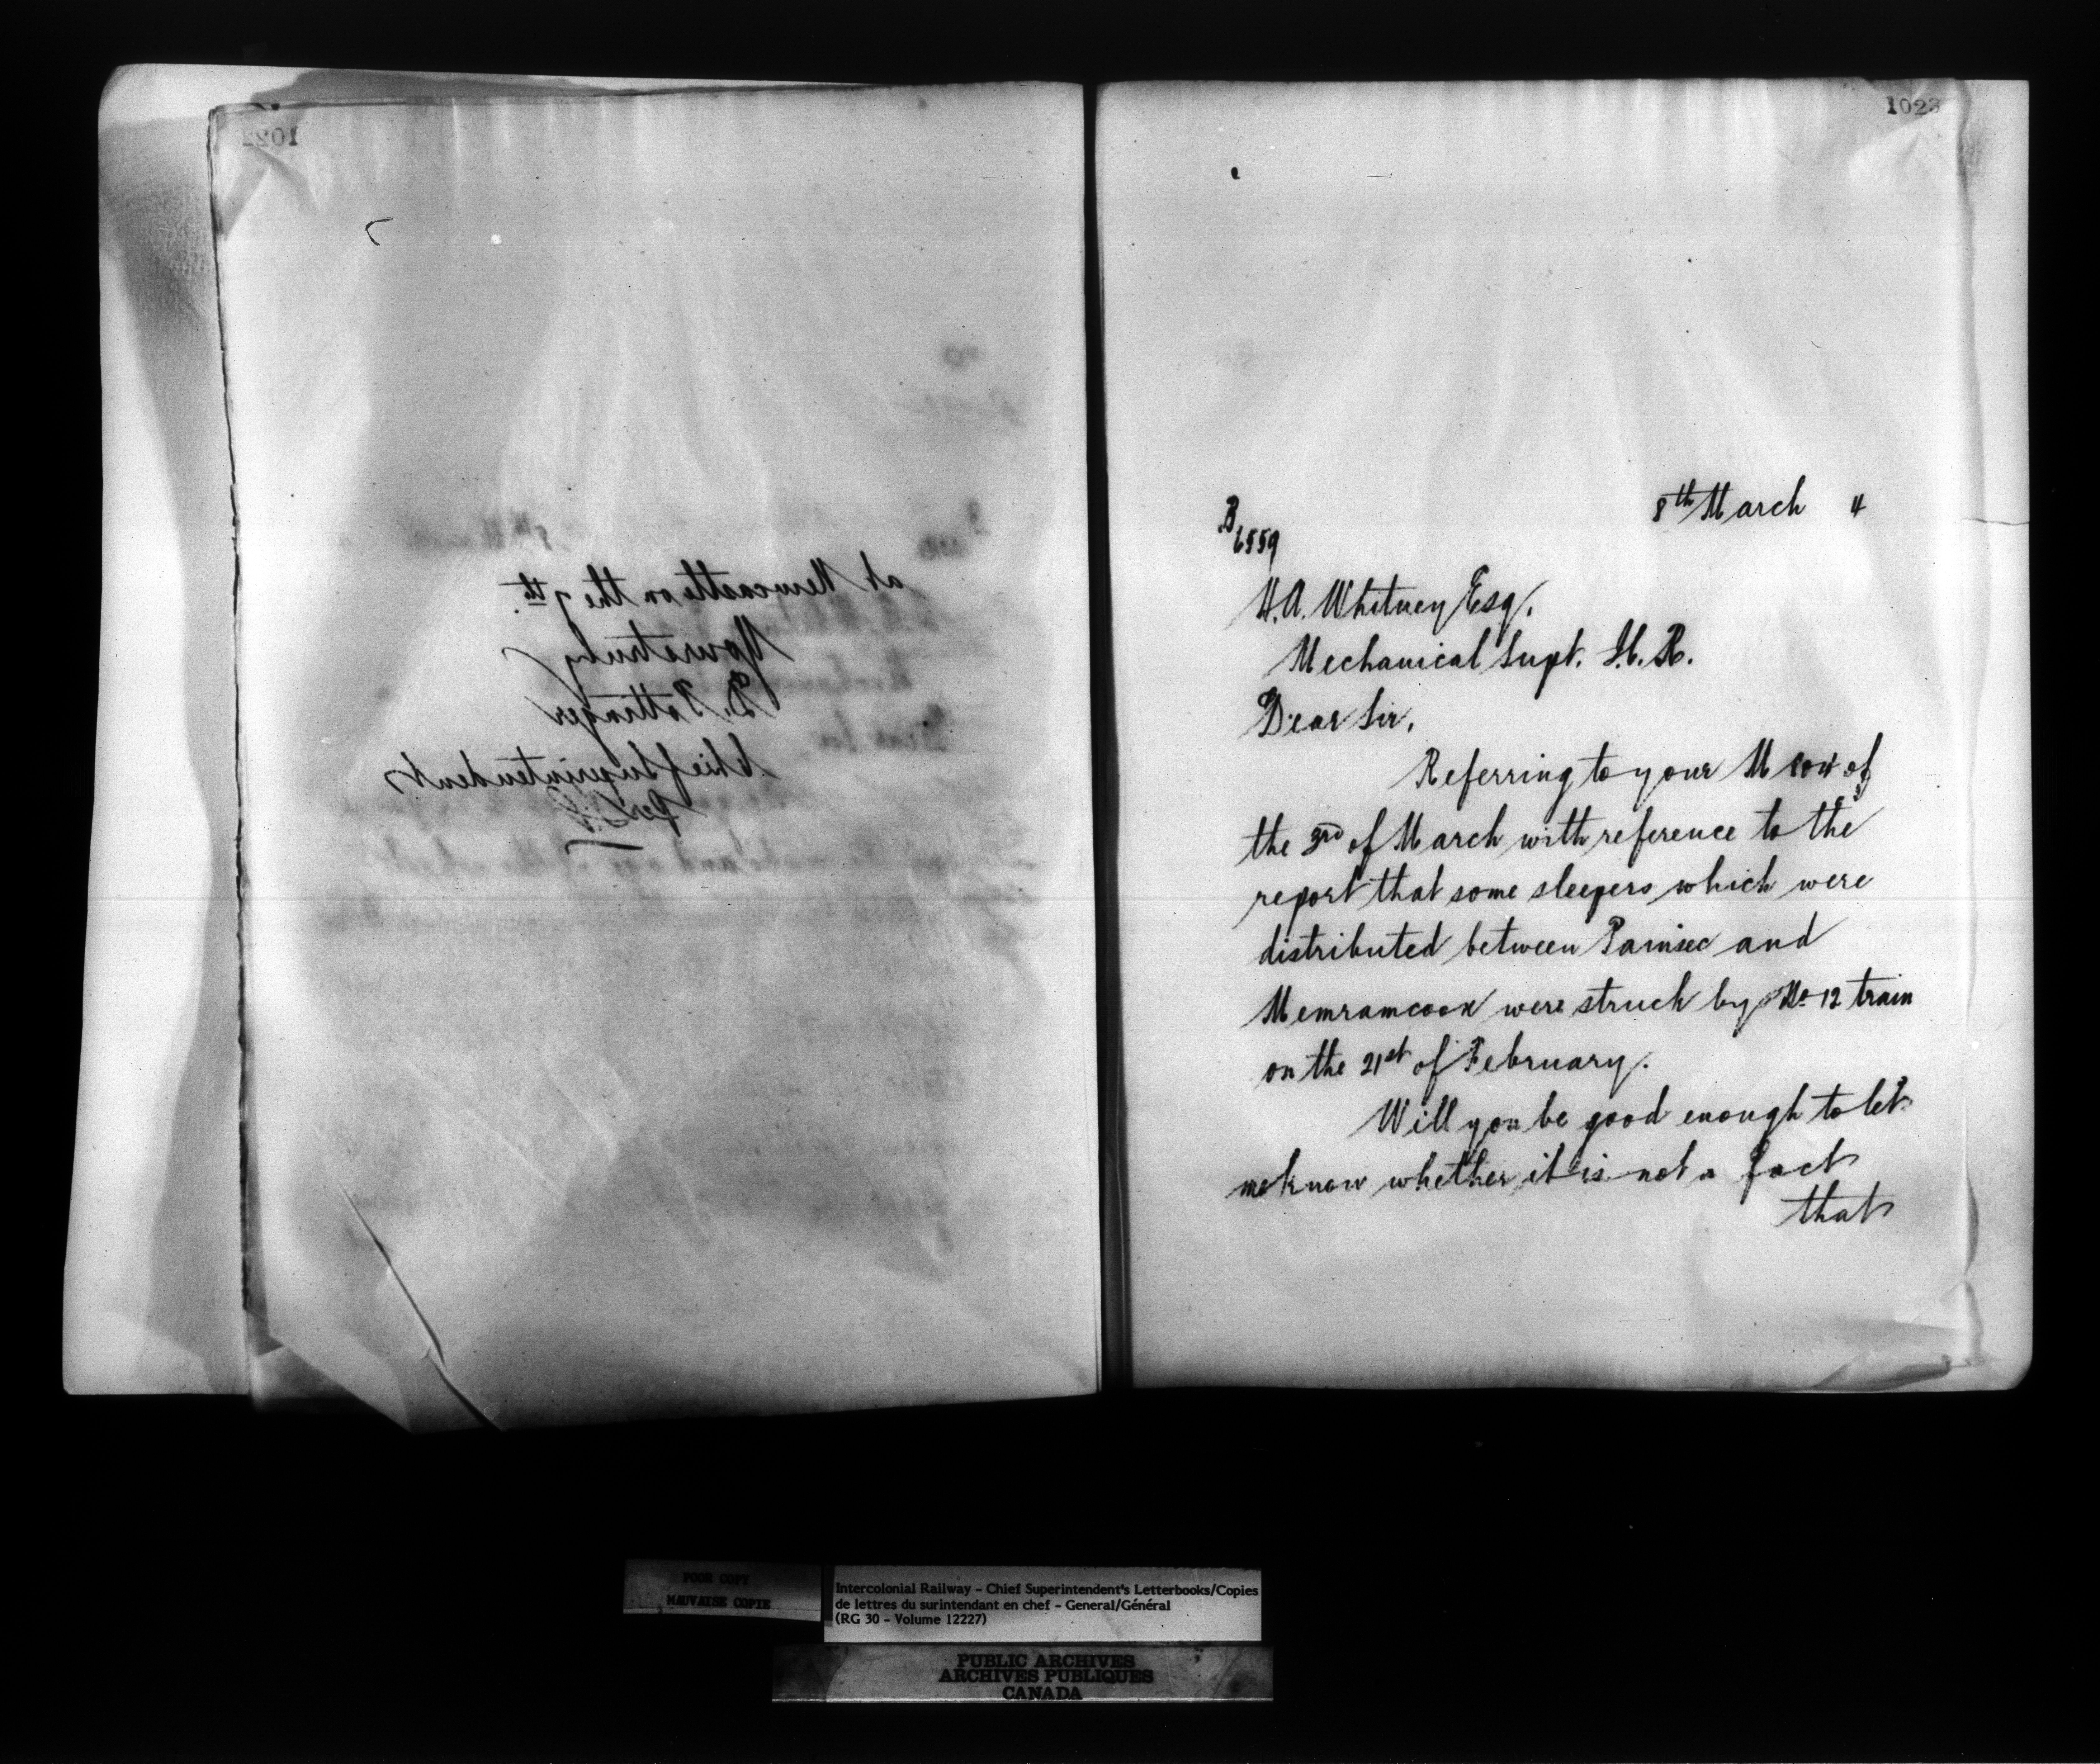 1022
at Newcastle on the 7th.
Yours truly
D. Pottinger
Chief Superintendent
Per
1023
8th March 4
B
6559
H.A. Whitney Esq.
Mechanical Supt. I.C.R.
Dear Sir,
Referring to your M of
the 3rd of March with reference to the
report that some sleepers which were
distributed between Painsec and
Memramcook were struck by No 12 train
on the 21st of February.
Will you be good enough to let
me know whether it is not a fact
that
POOR COPY
MAUVAISE COPIE
Intercolonial Railway - Chief Superintendent's Letterbooks/Copies
de lettres du surintendant en chef - General/Général
(RG 30 - Volume 12227)
PUBLIC ARCHIVES
ARCHIVES PUBLIQUES
CANADA